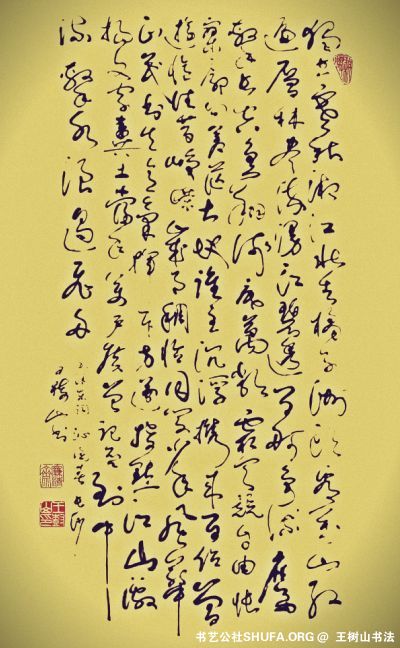 独立寒秋湘江北去橘子洲头看万山红
遍层林尽染漫江碧透百舸争流鹰
击长空鱼翔浅底万类霜天竞自由怅
寥廓问苍茫大地谁主沉浮携来百侣曾
游忆往昔峥嵘岁月稠恰同学少年风华
正茂书生意气挥斥方遒指点江山激
扬文字粪土当年万户侯曾记否到中
流击水浪遏飞舟
毛泽东词沁园春长沙
王树山书
书艺公社SHUFA.ORG @ 王树山书法